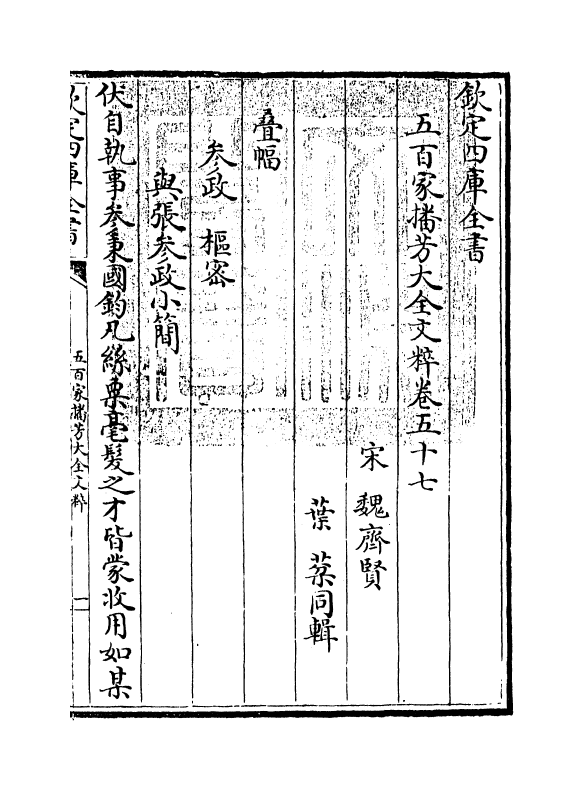 欽定四庫全書
五百家播芳大全文粹卷五十七
宋 魏齊賢
葉棻同輯
叠幅
參政 樞密
與張參政小簡
伏自執事參秉國鈞凡絲粟毫髮之才皆蒙收用如某
欽定四庫全書
五百家播芳大全文粹
一